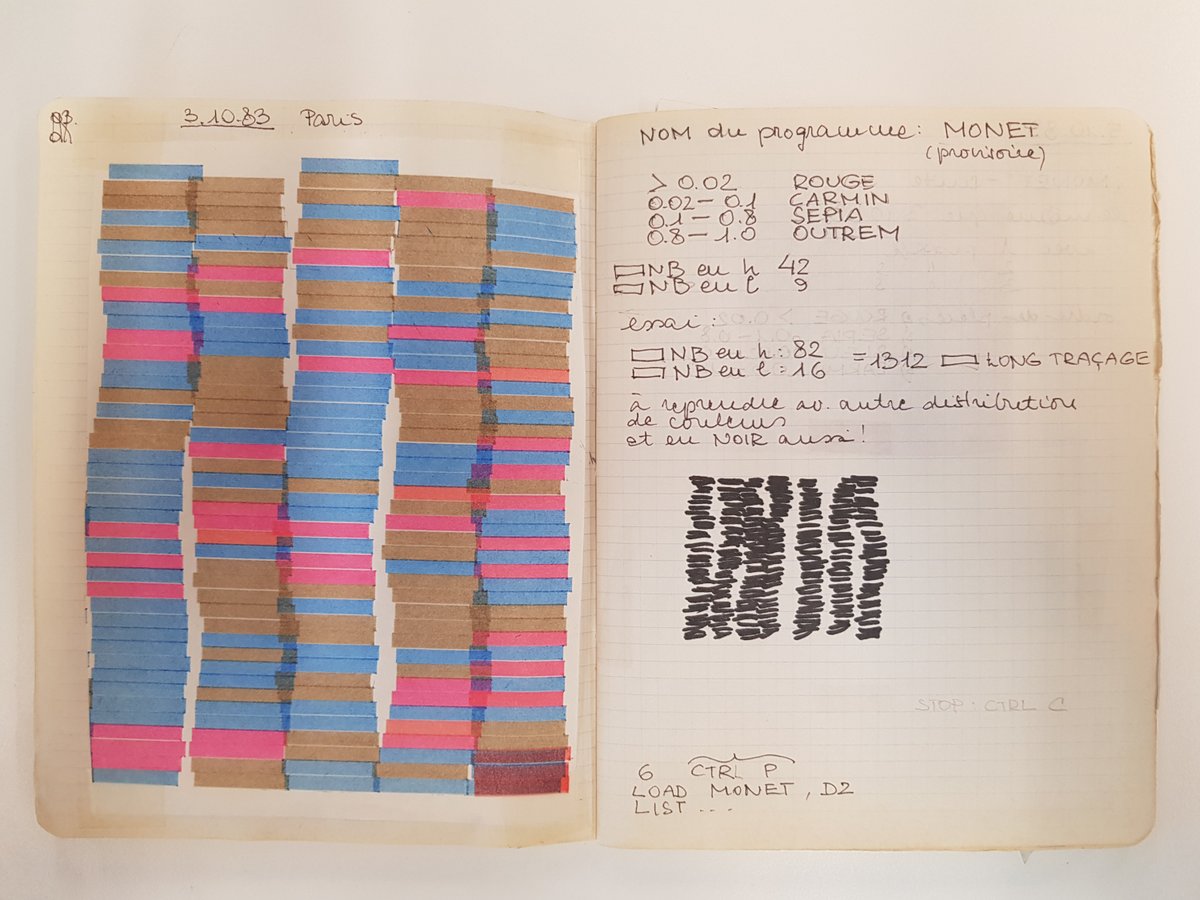 3.10.83 Paris
NOM du programme: MONET
(provisoire)
> 0.02 ROUGE
0.02 – 0.1 CARMIN
0.1 – 0.8 SEPIA
0.8 – 1.0 OUTREM
NB en h 42
NB en l 9
essai:
NB en h: 82
NB en l: 16 = 1312 LONG TRAÇAGE
à reprendre av. autre distribution
de couleurs
et en NOIR aussi!
STOP: CTRL C
6 CTRL P
LOAD MONET, D2
LIST ....